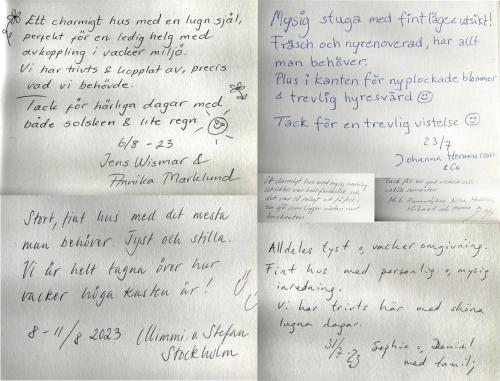 Ett charmigt hus med en lugn själ,
perfekt för en ledig helg med
avkoppling i vacker miljö.
Vi har trivts & kopplat av, precis
vad vi behövde.
Tack för härliga dagar med
både solsken & lite regn
6/8 - 23
Jens Wismar &
Annika Marklund
Mysig stuga med fint läge & utsikt!
Fräsch och nyrenoverad, har allt
man behöver.
Plus i kanten för nyplockade blommor
& trevlig hyresvärd ☺
Tack för en trevlig vistelse ☺
23/7
Johanna Hermansson
& Co
Ett charmigt hus med mysig inredning.
Tack för
Stort, fint hus med det mesta
man behöver. Tyst och stilla.
Vi är helt tagna över hur
vacker höga kusten är!
8-11/8 2023 Mimmi & Stefan
Stockholm
Alldeles tyst o, vacker omgivning.
Fint hus med personlig o, mysig
inredning.
Vi har trivts här med sköna
lugna dagar.
31/7 -23 Sophie o, Daniel
med familj